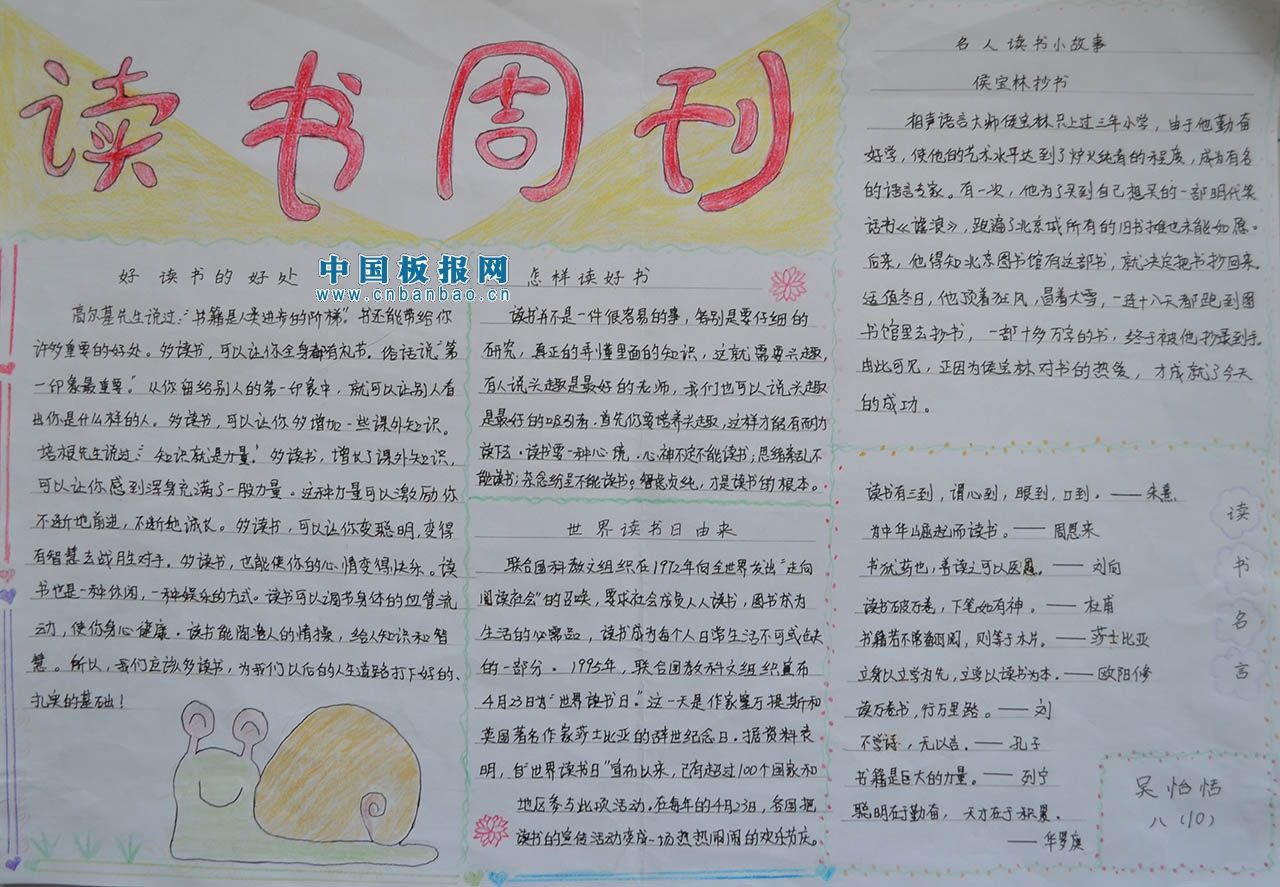 读书周刊
中国板报网
www.cnbanbao.cn
好读书的好处
高尔基先生说过:“书籍是人类进步的阶梯”。书还能带给你
许多重要的好处。多读书,可以让你全身都有礼节。俗话说“第
一印象最重要。”从你留给别人的第一印象中,就可以让别人看
出你是什么样的人。多读书,可以让你多增加一些课外知识。
培根先生说过:“知识就是力量。”多读书,增长了课外知识,
可以让你感到浑身充满了一股力量。这种力量可以激励你
不断地前进,不断地成长。多读书,可以让你变聪明,变得
有智慧去战胜对手。多读书,也能使你的心情变得快乐。读
书也是一种休闲,一种娱乐的方式。读书可以调节身体的血管流
动,使你身心健康。读书能陶冶人的情操,给人知识和智
慧。所以,我们应该多读书,为我们以后的人生道路打下好的、
扎实的基础!
怎样读好书
读书并不是一件很容易的事,各别是要仔细的
研究,真正的弄懂里面的知识,这就需要兴趣,
有人说兴趣是最好的老师,我们也可以说兴趣
是最好的吸引者.首先你要培养兴趣,这样才能有耐力
读下去.读书要一种心境.心神不定不能读书;思绪紊乱不
能读书;杂念纷呈不能读书。智虑贞纯,才是读书的根本。
世界读书日由来
联合国科教文组织在1972年向全世界发出“走向
阅读社会”的召唤,要求社会成员人人读书,图书成为
生活的必需品,读书成为每个人日常生活不可或缺
的一部分。1995年,联合国教科文组织宣布
4月23日为“世界读书日”。这一天是作家塞万提斯和
英国著名作家莎士比亚的辞世纪念日.据资料表
明,自“世界读书日”宣布以来,已有超过100个国家和
地区参与此项活动.在每年的4月23日,各国把
读书的宣传活动变成一场热热闹闹的欢乐节庆。
名人读书小故事
侯宝林抄书
相声语言大师侯宝林只上过三年小学,由于他勤奋
好学,使他的艺术水平达到了炉火纯青的程度,成为有名
的语言专家。有一次,他为了买到自己想买的一部明代笑
话书《谑浪》,跑遍了北京城所有的旧书摊也未能如愿。
后来,他得知北京图书馆有这部书,就决定把书抄回来。
适值冬日,他顶着狂风,冒着大雪,一连十八天都跑到图
书馆里去抄书,一部十多万字的书,终于被他抄录到手。
由此可见,正因为侯宝林对书的热爱,才成就了今天
的成功。
读书有三到,谓心到,眼到,口到。——朱熹
为中华崛起而读书。——周恩来
书犹药也,善读之可以医愚。——刘向
读书破万卷,下笔如有神。——杜甫
书籍若不常翻阅,则等于木片。——莎士比亚
立身以立学为先,立学以读书为本。——欧阳修
读万卷书,行万里路。——刘
不学诗,无以言。——孔子
书籍是巨大的力量。——列宁
聪明在于勤奋,天才在于积累.
——华罗庚
读书名言
吴怡恬
八(10)